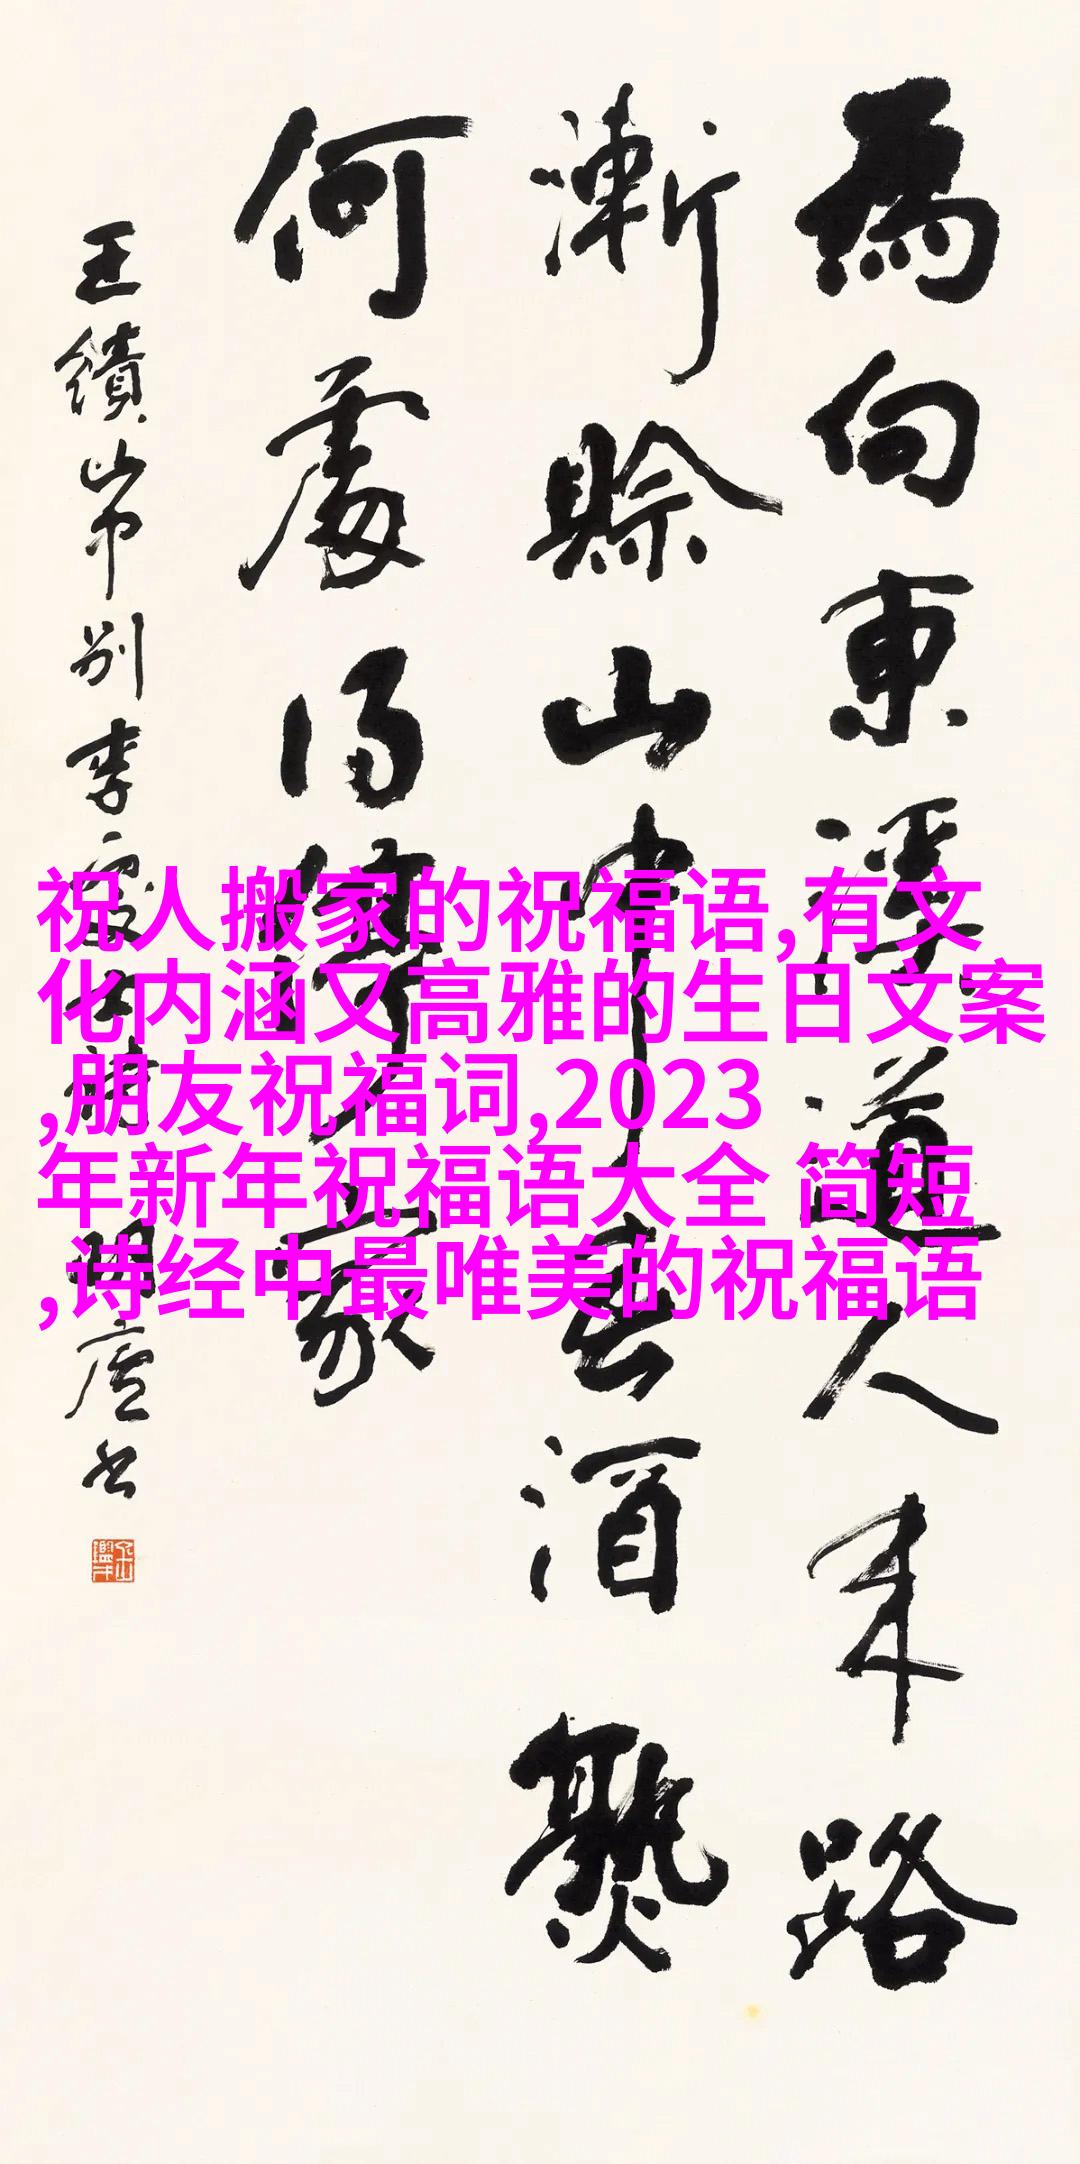 為向東溪道人来路
漸賒山中春酒熟
何處得停家
王績山中別李處士詩 廬书
祝人搬家的祝福语,有文
化内涵又高雅的生日文案
,朋友祝福词,2023
年新年祝福语大全 简短
,诗经中最唯美的祝福语